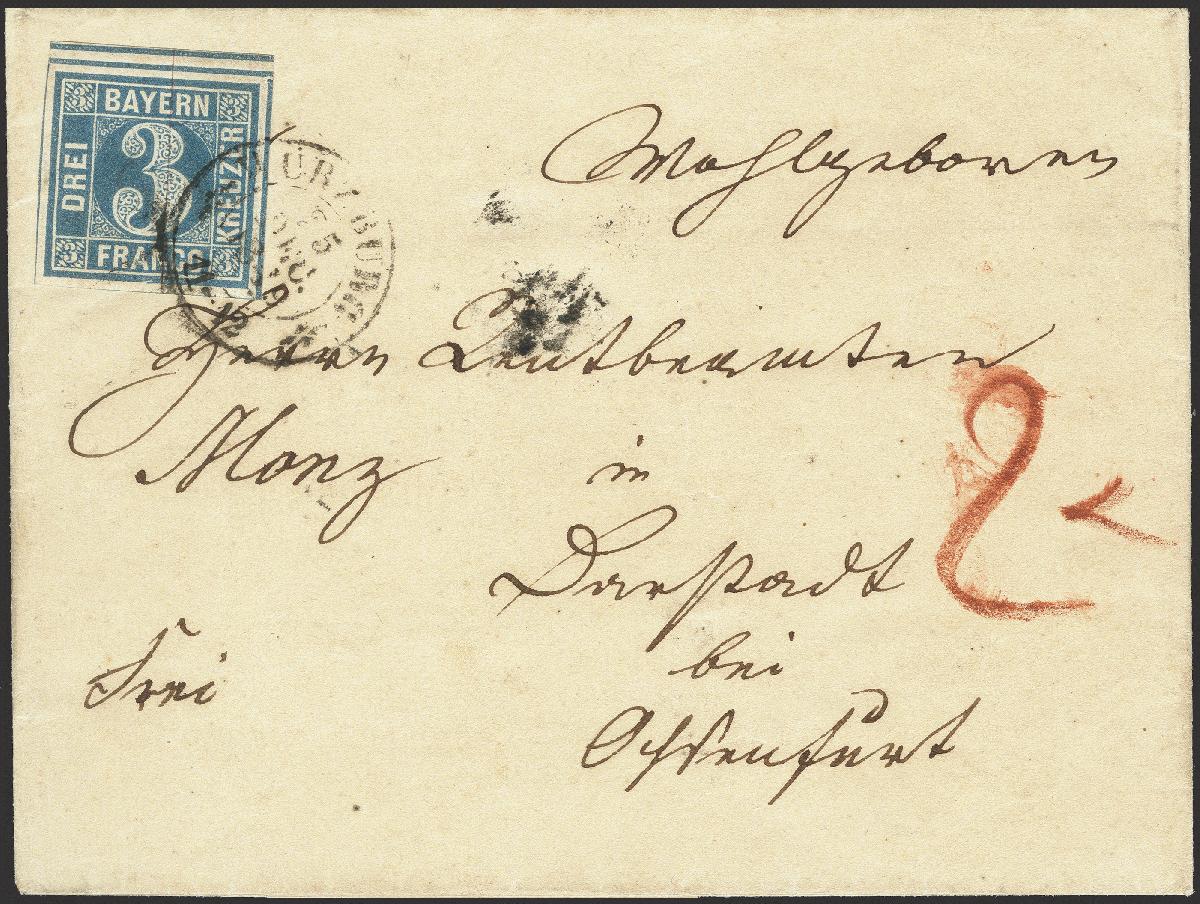 BAYERN
DREI 3 KREUZER
FRANCO
WÜRZBURG
25
DEC.
11-12
Wohlgeboren
Herrn Rentbeamten
Monz in
Darstadt
bei
Ochsenfurt
Frei
2